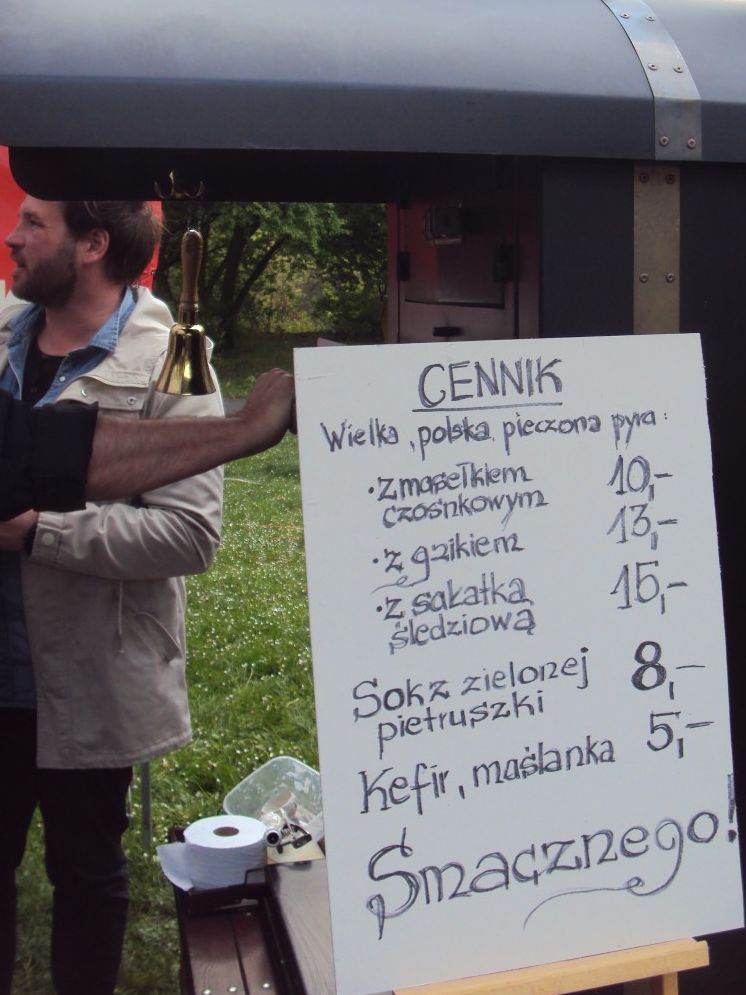 CENNIK
Wielka, polska, pieczona pyra:
• z masełkiem 10,-
czosnkowym
• z gzikiem 13,-
• z sałatką 15,-
śledziową
Sok z zielonej 8,-
pietruszki
Kefir, maślanka 5,-
Smacznego!